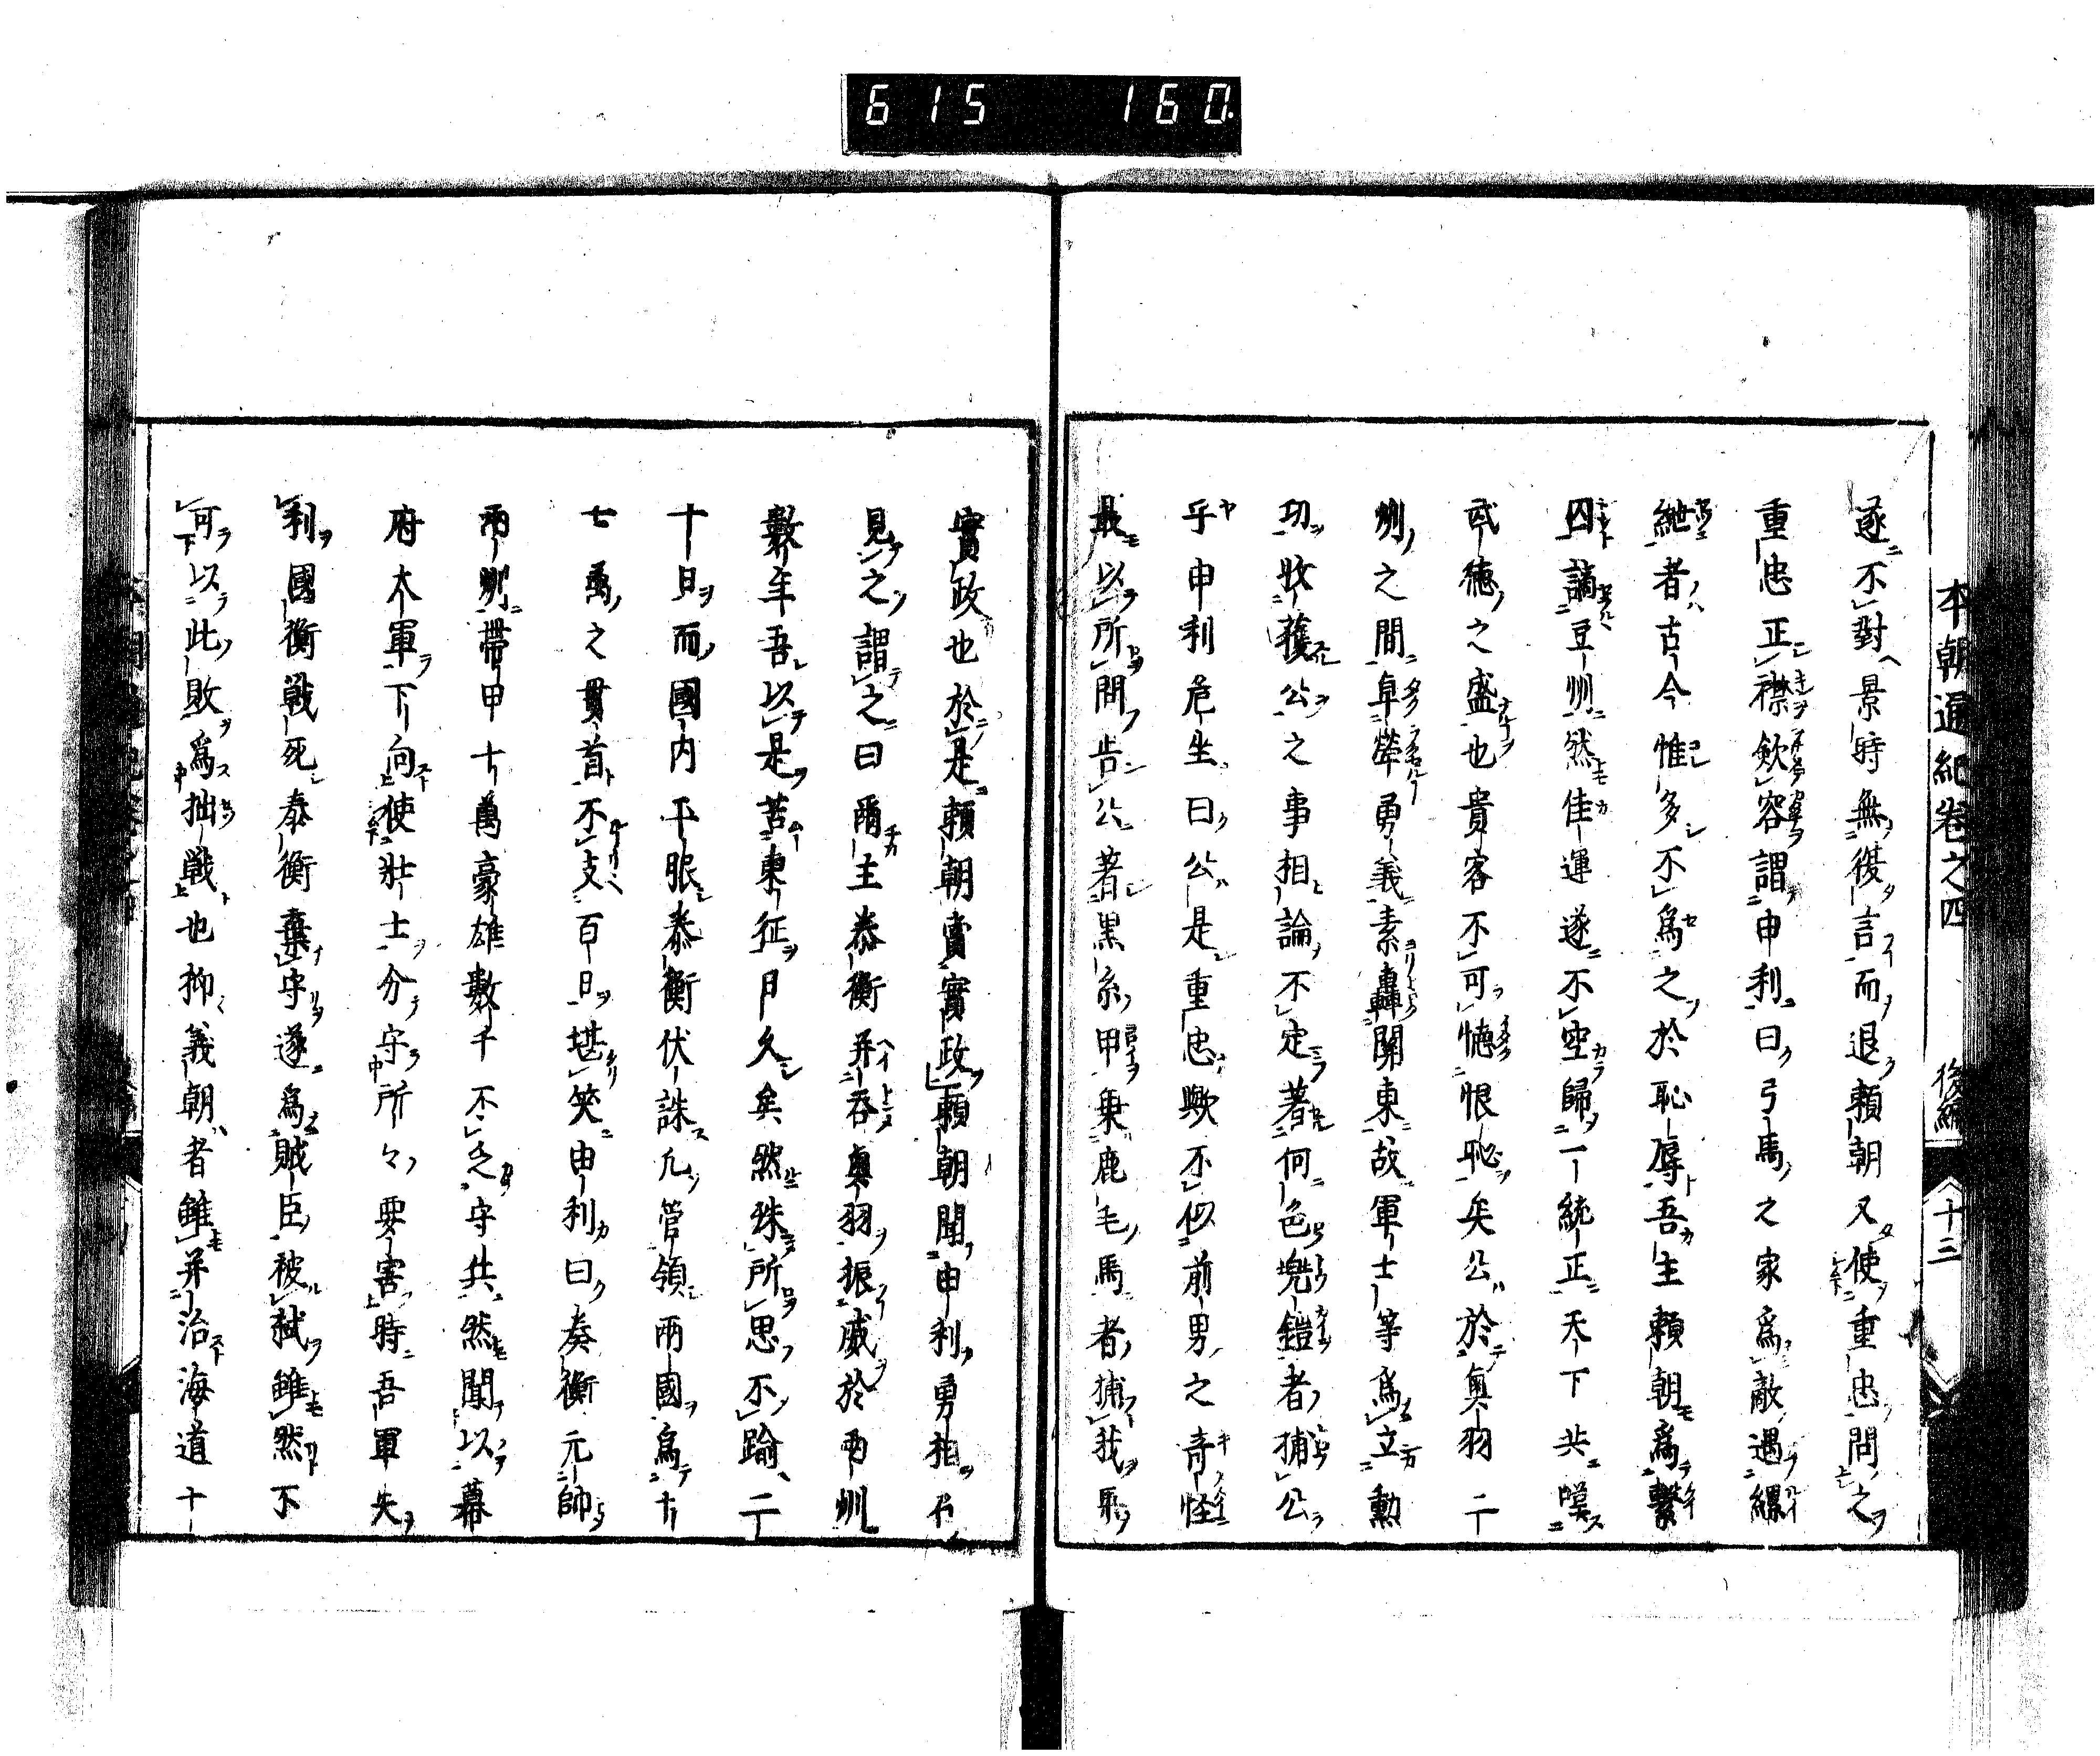 615 160
本朝通紀卷之四 後編 十三
遂不對景時無復言而退賴朝又使重忠問之
重忠正襟斂容謂申利曰弓馬之家爲敵遇縲
紲者古今惟多不爲之於恥辱吾主賴朝爲繫
囚謫豆州然佳運遂不空歸一統正天下共嘆
武德之盛也貴客不可憾恨恥矣公於奧羽二
州之間卓犖勇義素轟關東故軍士等爲立勳
功收獲公之事相論不定著何色兜鎧者捕公
乎申利危坐曰公是重忠歟不似前男之奇怪
最以所問告公著黑糸甲乗鹿毛馬者捕我
實政也於是賴朝賞實政賴朝聞申利勇相召
見之謂之曰爾主泰衡并吞奧羽振威於兩州
數年吾以是苦東征月久矣然殊所思不踰二
十日而國内平服泰衡伏誅凡管領兩國爲十
七萬之貫首不支百日堪笑申利曰泰衡元帥
兩州帶甲十萬豪雄數千不乏守共然聞以幕
府大軍下向使壯士分守所々要害時吾軍失
利國衡戰死泰衡棄守遂爲賊臣被弑雖然不
可以此敗爲拙戰也抑義朝者雖并治海道十